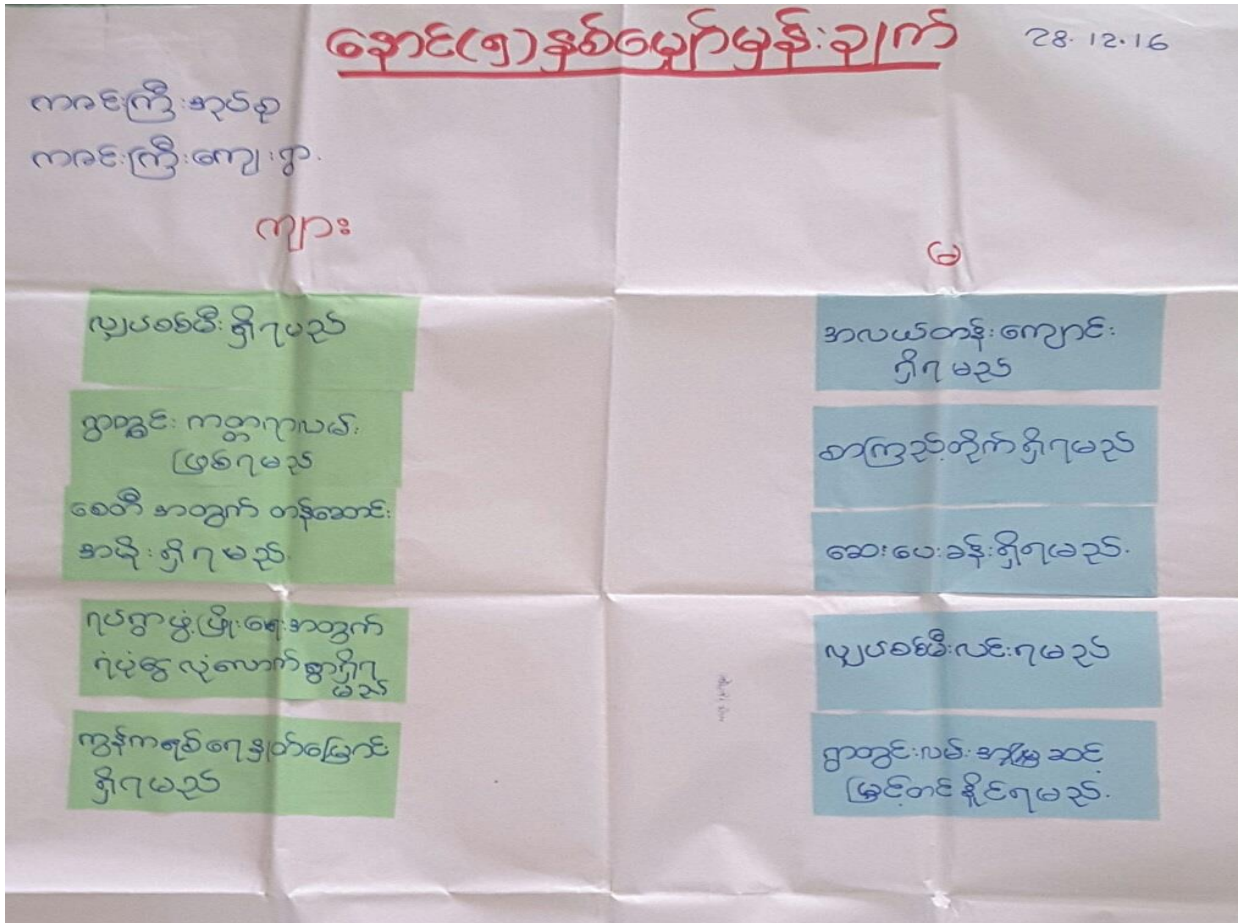 နောင်(၅)နှစ်မျှော်မှန်းချက်
28.12.16
ကဇင်းကြီးအုပ်စု
ကဇင်းကြီးကျေးရွာ.
ကျား
မ
လျှပ်စစ်မီးရှိရမည်
ရွာတွင်း ကတ္တရာလမ်း
ဖြစ်ရမည်
စေတီ အတွက် တန်ဆောင်း
အမိုးရှိရမည်.
ရပ်ရွာဖွံ့ဖြိုးရေးအတွက်
ရံပုံငွေ လုံလောက်စွာရှိရ
မည်
ကွန်ကရစ်ရေနှုတ်မြောင်း
ရှိရမည်
အလယ်တန်းကျောင်း
ရှိရမည်
စာကြည့်တိုက်ရှိရမည်
ဆေးပေးခန်းရှိရမည်.
လျှပ်စစ်မီးလင်းရမည်
ရွာတွင်းလမ်း အဆင့်
မြှင့်တင်နိုင်ရမည်.